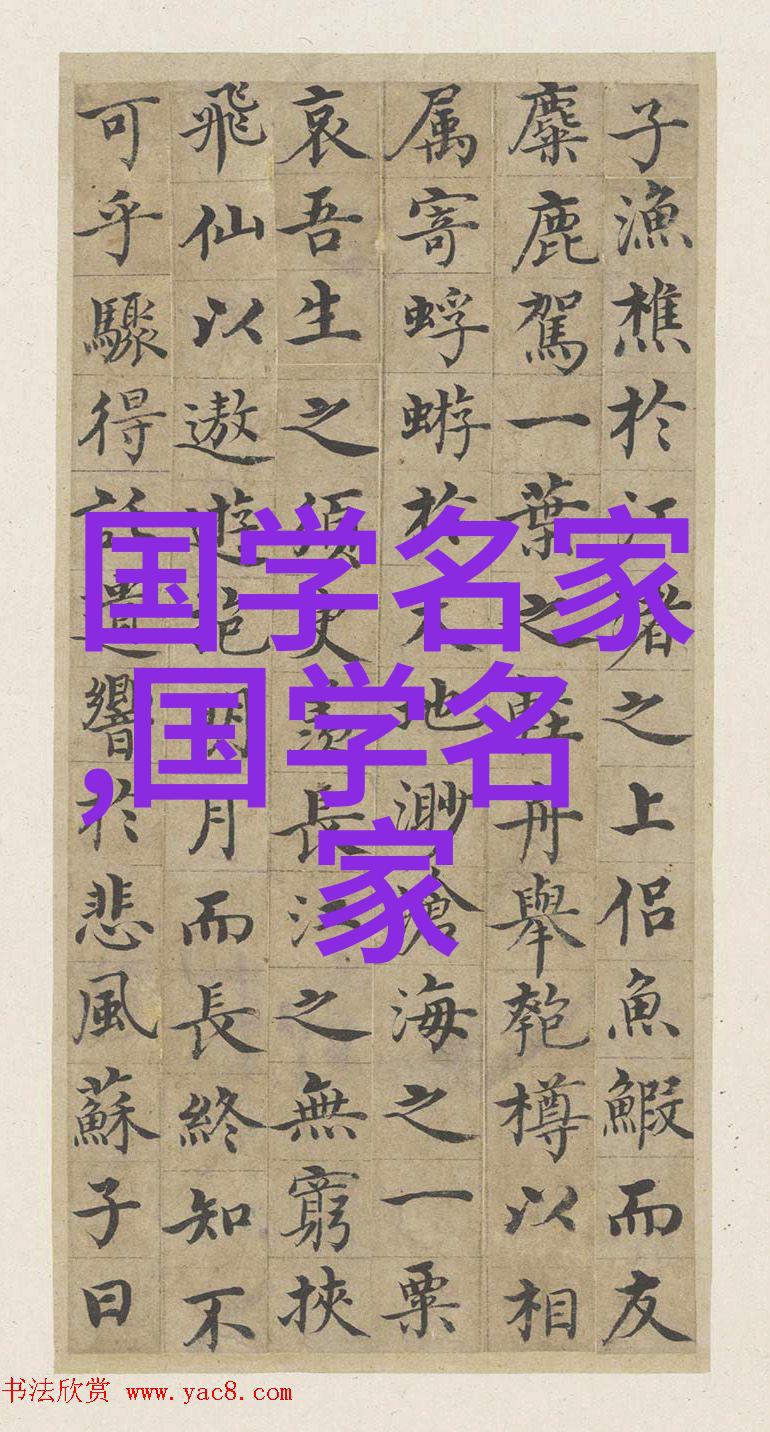 子漁樵於江渚之上侶魚鰕而友
麋鹿駕一葉之輕舟舉匏樽以相
属寄蜉蝣於天地渺滄海之一粟
哀吾生之須臾羨長江之無窮挾
飛仙以遨遊抱明月而長終知不
可乎驟得託遺響於悲風蘇子曰
国学名家
,国学名
家
书法欣赏 www.yac8.com